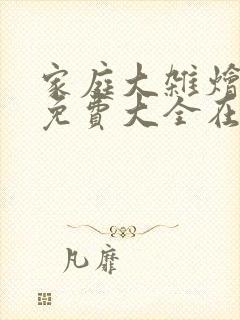 家庭大杂烩
免費大全在
凡靡